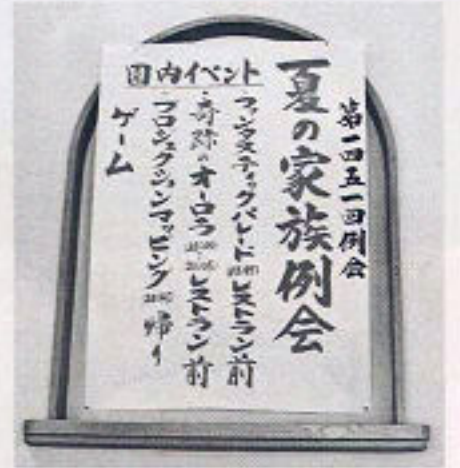 第一四五一回例会
夏の家族例会
園内イベント
ファンタスティックパレード レストラン前
奇跡のオーロラ レストラン前
プロジェクションマッピング 帰り
ゲーム